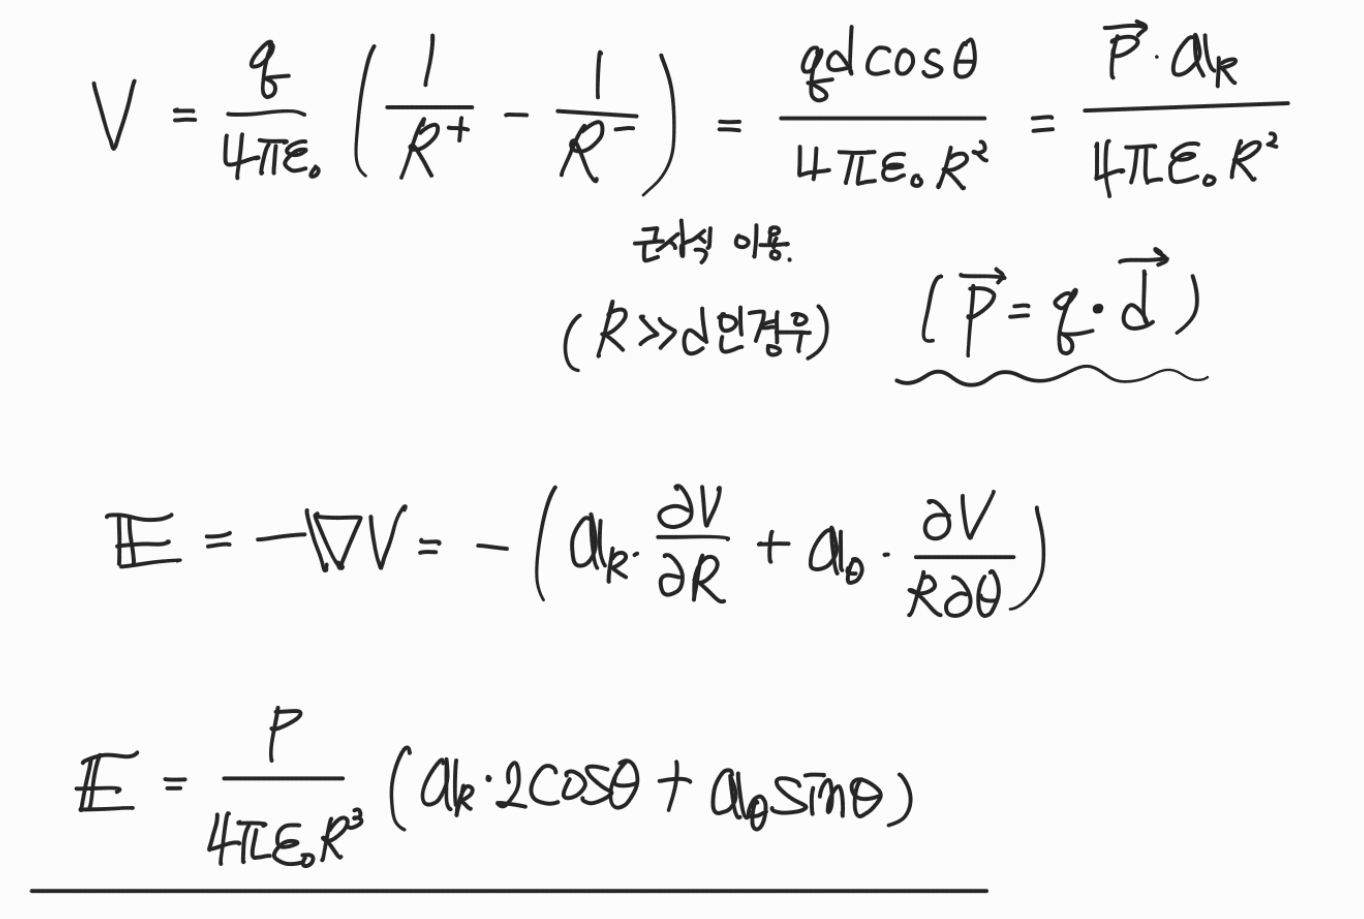 V = q/4πε₀ (1/R⁺ - 1/R⁻) = qd cosθ/4πε₀R² = P⃗ · 𝕒_R/4πε₀R²
근사식 이용.
(R >> d 인경우)
(P⃗ = q · d⃗)
𝔼 = -∇V = -(𝕒_R · ∂V/∂R + 𝕒_θ · ∂V/R∂θ)
𝔼 = P/4πε₀R³ (𝕒_R · 2cosθ + 𝕒_θ sinθ)